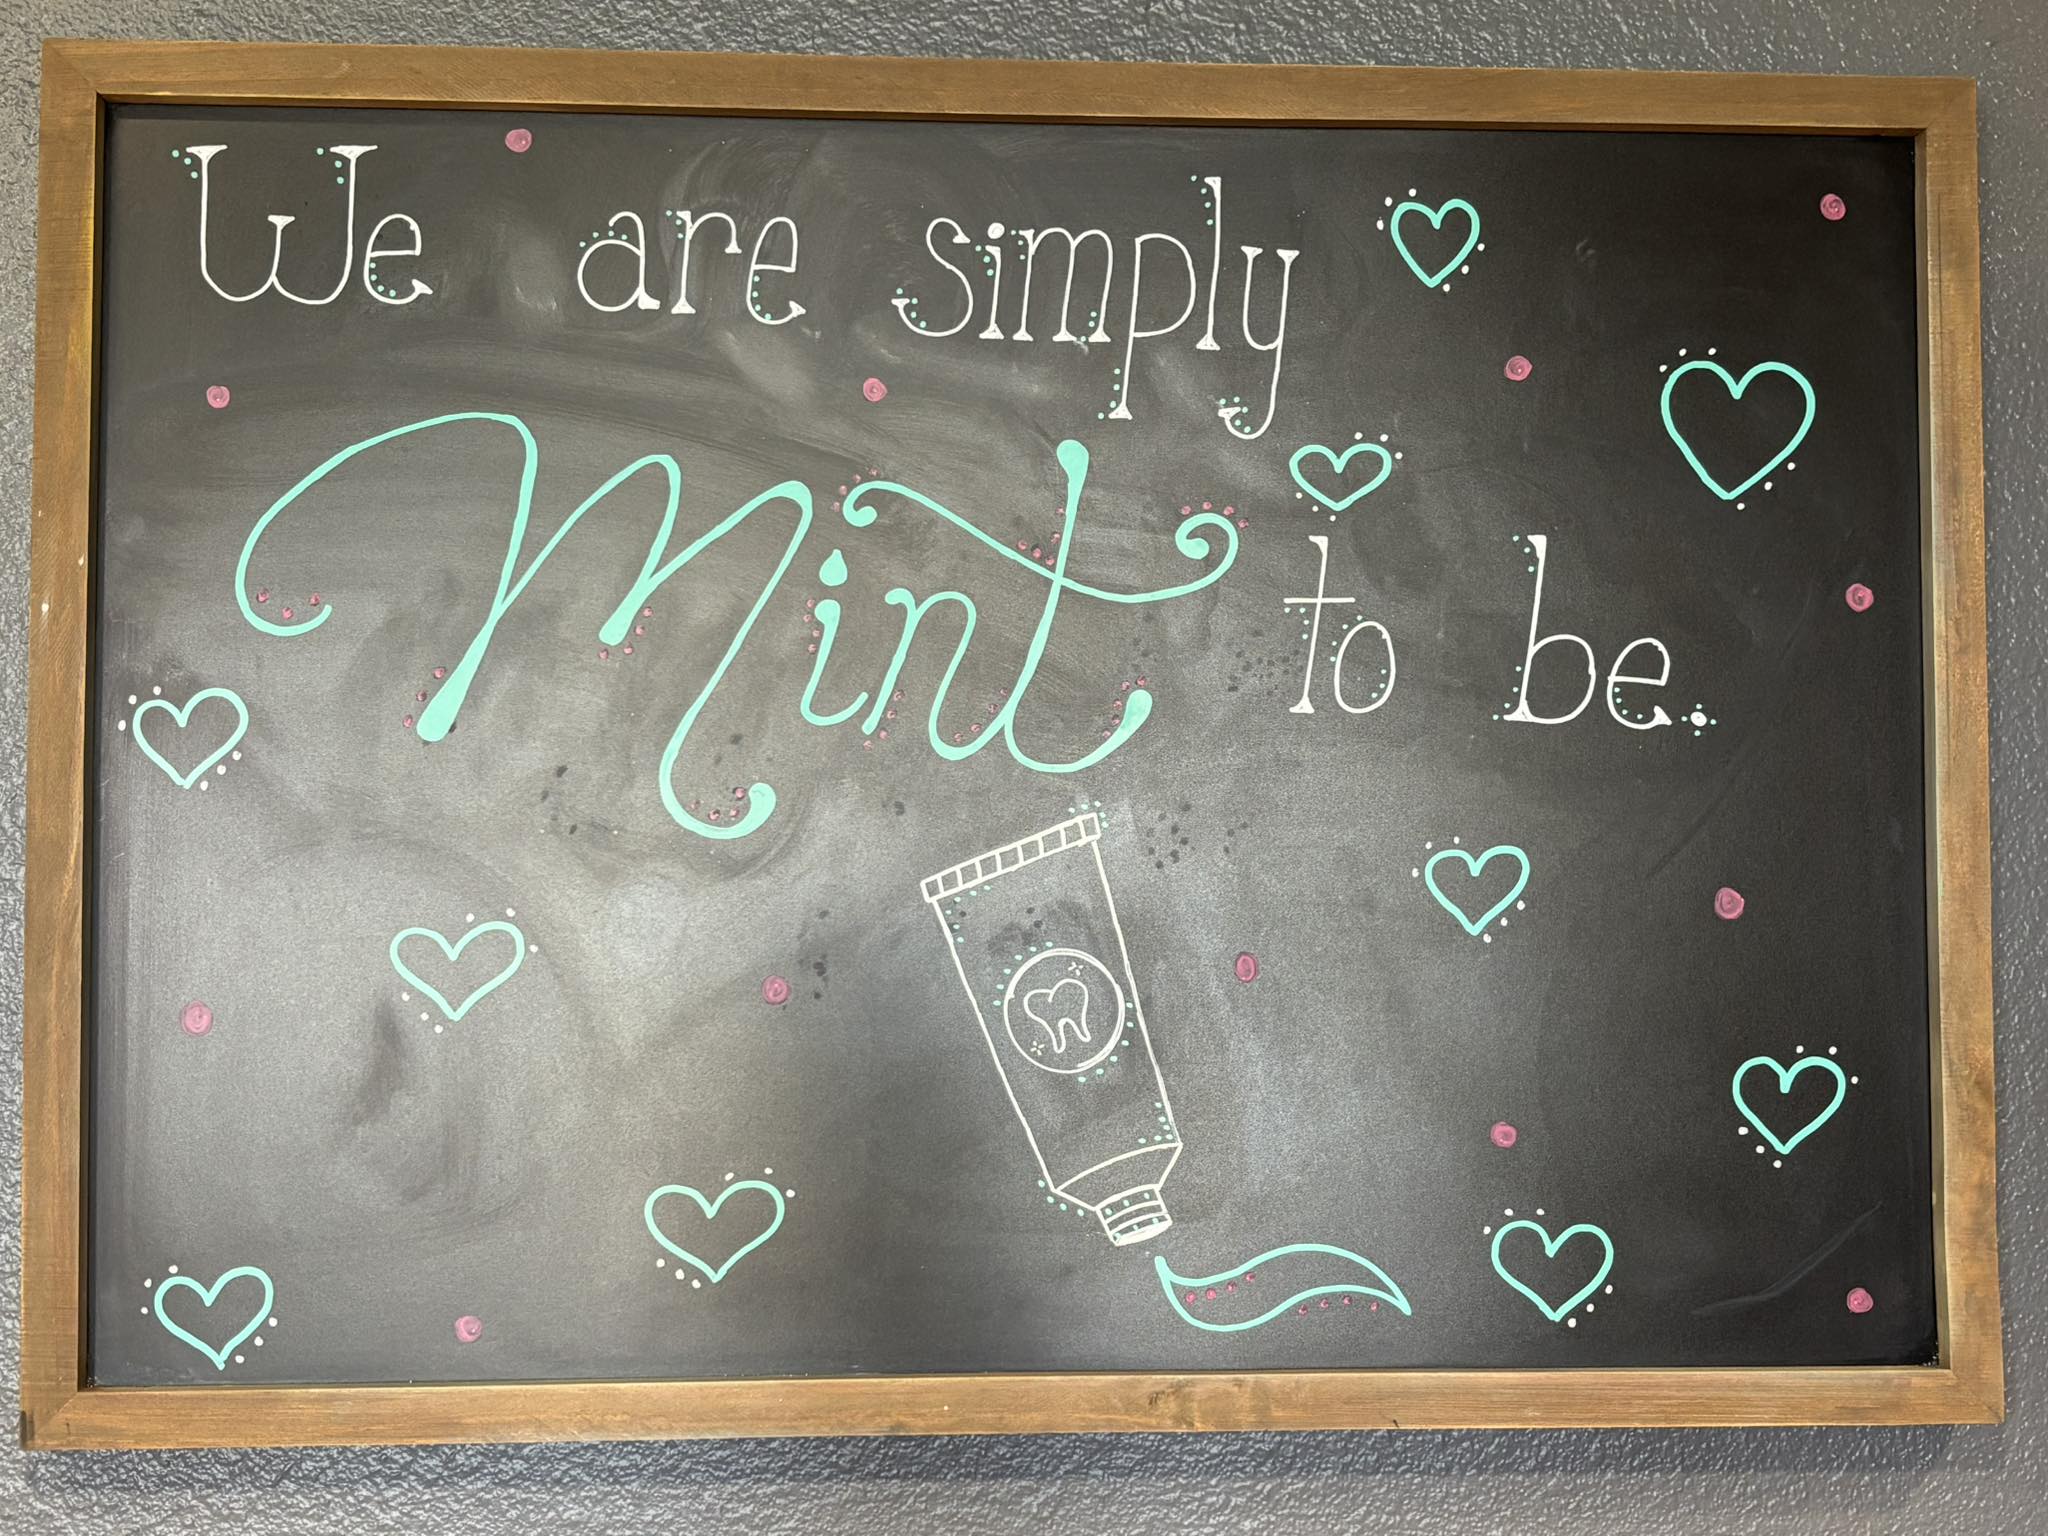 We are simply
Mint to be.